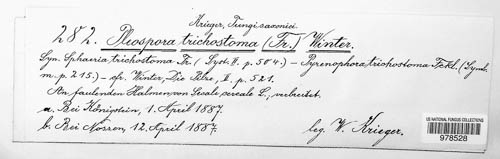 Krieger, Fungi saxonici.
282. Pleospora trichostoma (Fr.) Winter.
Syn. Sphaeria trichostoma Fr. (Syst. II. p. 504.) – Pyrenophora trichostoma Fckl. (Symb.
m. p. 215.) – cfr. Winter, Die Pilze, II. p. 521.
An faulenden Halmen von Secale cereale L., verbreitet.
a. Bei Königstein, 1. April 1887.
b. Bei Nossen, 12. April 1887.
leg. W. Krieger.
US NATIONAL FUNGUS COLLECTIONS
978528